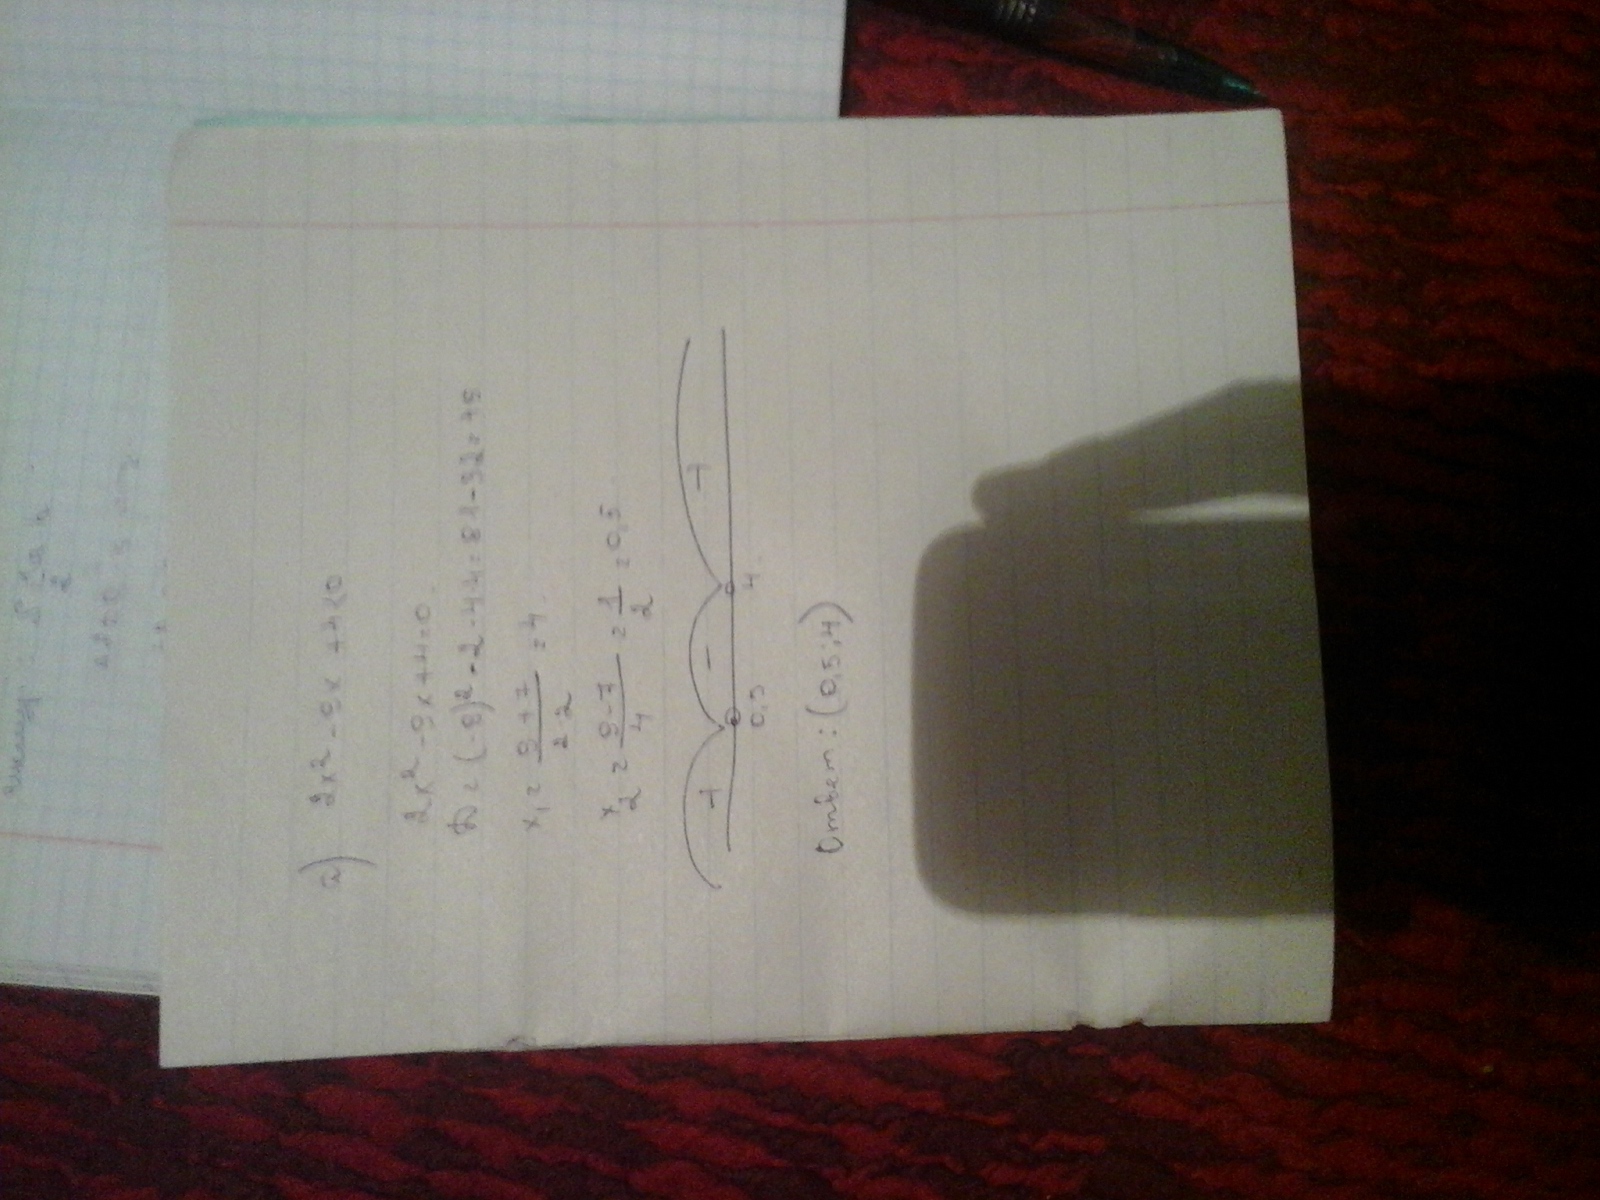 а) 2x² - 9x + 4 < 0
2x² - 9x + 4 = 0.
D = (-9)² - 2 · 4 · 4 = 81 - 32 = 49
x₁ = (9 + 7)/(2 · 2) = 4.
x₂ = (9 - 7)/4 = 1/2 = 0,5
+ - +
0,5 4
Ответ: (0,5; 4)